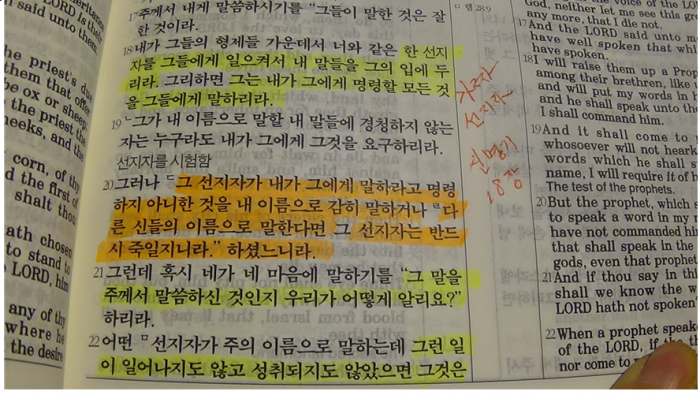 LORD is their
said unto them
the priest's due
them that offer
be ox or sheep
the priest the
cheeks, and the
corn, of thy
the first of
shalt thou
hath chosen
to stand to
LORD, him
any of thy
where he
the desire
17주께서 내게 말씀하시기를 "그들이 말한 것은 잘
한 것이라.
18내가 그들의 형제들 가운데서 너와 같은 한 선지
자를 그들에게 일으켜서 내 말들을 그의 입에 두
리라. 그리하면 그는 내가 그에게 명령할 모든 것
을 그들에게 말하리라.
19 그가 내 이름으로 말할 내 말들에 경청하지 않는
자는 누구라도 내가 그에게 그것을 요구하리라.
선지자를 시험함
20그러나 ㄷ그 선지자가 내가 그에게 말하라고 명령
하지 아니한 것을 내 이름으로 감히 말하거나 ㄹ다
른 신들의 이름으로 말한다면 그 선지자는 반드
시 죽일지니라." 하셨느니라.
21그런데 혹시 네가 네 마음에 말하기를 "그 말을
주께서 말씀하신 것인지 우리가 어떻게 알리요?"
하리라.
22어떤 ㅁ선지자가 주의 이름으로 말하는데 그런 일
이 일어나지도 않고 성취되지도 않았으면 그것은
렘 28:9
가짜
선지자
신명기
18장
God, neither let me see this
any more, that I die not.
17And the LORD said unto me
have well spoken that which
have spoken.
18I will raise them up a Prop
among their brethren, like
and will put my words in h
and he shall speak unto th
I shall command him.
19And it shall come to
whosoever will not heark
words which he shall s
name, I will require it of h
The test of the prophets.
20But the prophet, which s
to speak a word in my n
have not commanded him
that shall speak in the
gods, even that prophet
21And if thou say in th
shall we know the w
LORD hath not spoken
22When a prophet speak
of the LORD, if the
nor come to